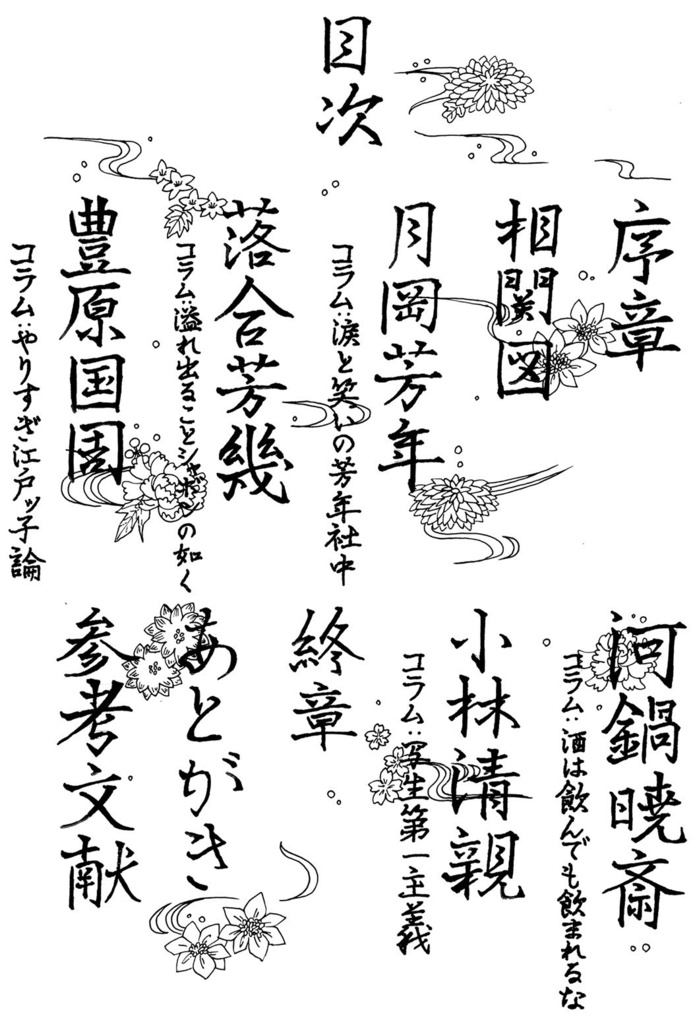 目次
序章
相関図
月岡芳年
コラム：涙と笑いの芳年社中
落合芳幾
コラム：溢れ出ることシャボンの如く
豊原国周
コラム：やりすぎ江戸ッ子論
河鍋暁斎
コラム：酒は飲んでも飲まれるな
小林清親
コラム：写生第一主義
終章
あとがき
参考文献